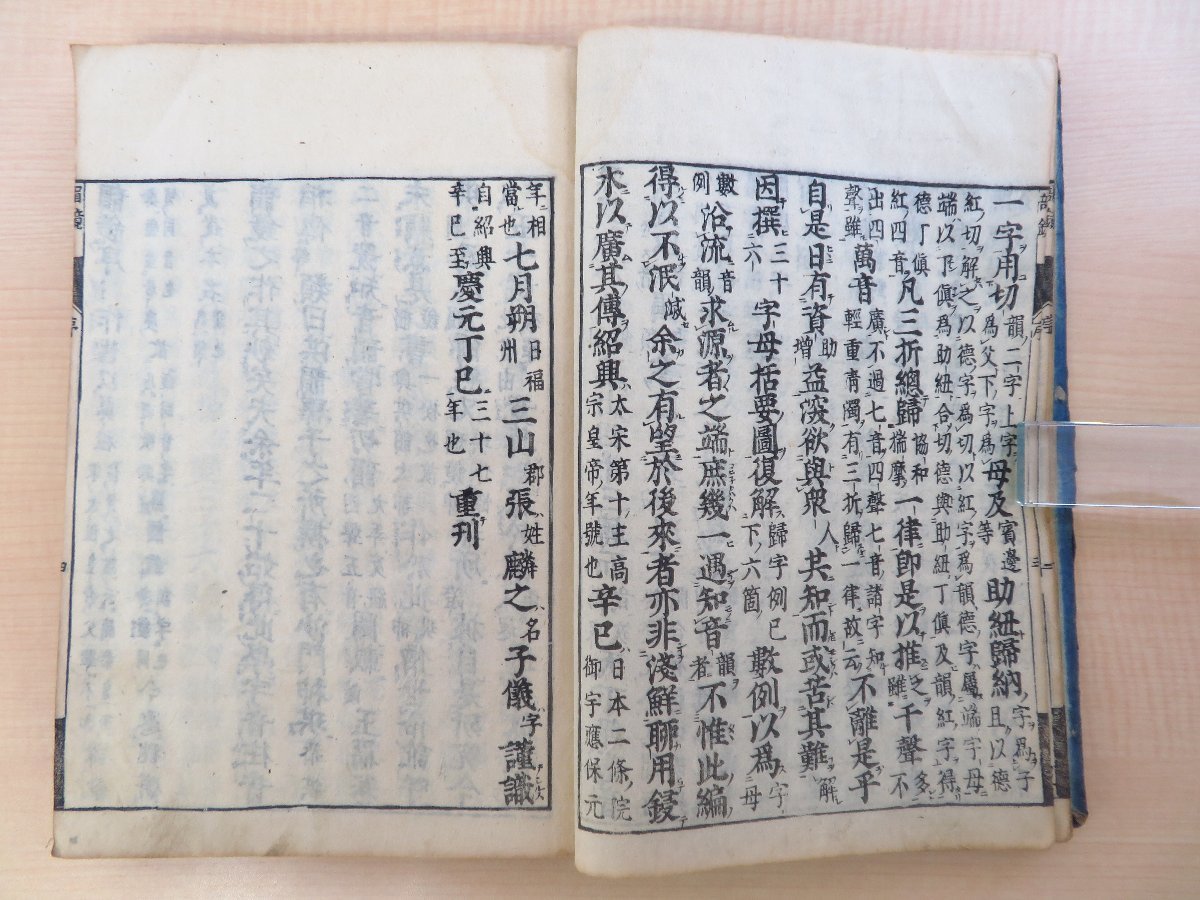 韻鏡 序 三
一字用切韻二字上字為父下字為母及賓邊等助紐歸納字為子且以德
紅切解之以德字為切以紅字為韻德字屬端字母
端以下傎為助紐合切德與助紐丁傎及韻紅字得
德丁傎紅四音凡三折總歸協和揣摩一律即是以推之雖千聲多不
出四聲雖萬音廣不過七音四聲七音諸字知輕重青濁有三折歸一律故云不離是乎
自是日有資助增益深欲與衆人共知而或苦其難解
因撰三十六字母括要圖復解歸字例已下六箇數例以為字母
數例沿流音韻求源者之端庶幾一遇知音韻者不惟此編
得以不泯余之有望於後來者亦非淺鮮聊用鋟
木以廣其傳紹興太宋第十主高宗皇帝年號也辛巳日本二條院御宇應保元
年相當也七月朔日福州三山郡張姓麟之名子儀字謹識
自紹興辛巳至慶元丁巳三十七年也重刊
韻鏡 序 四